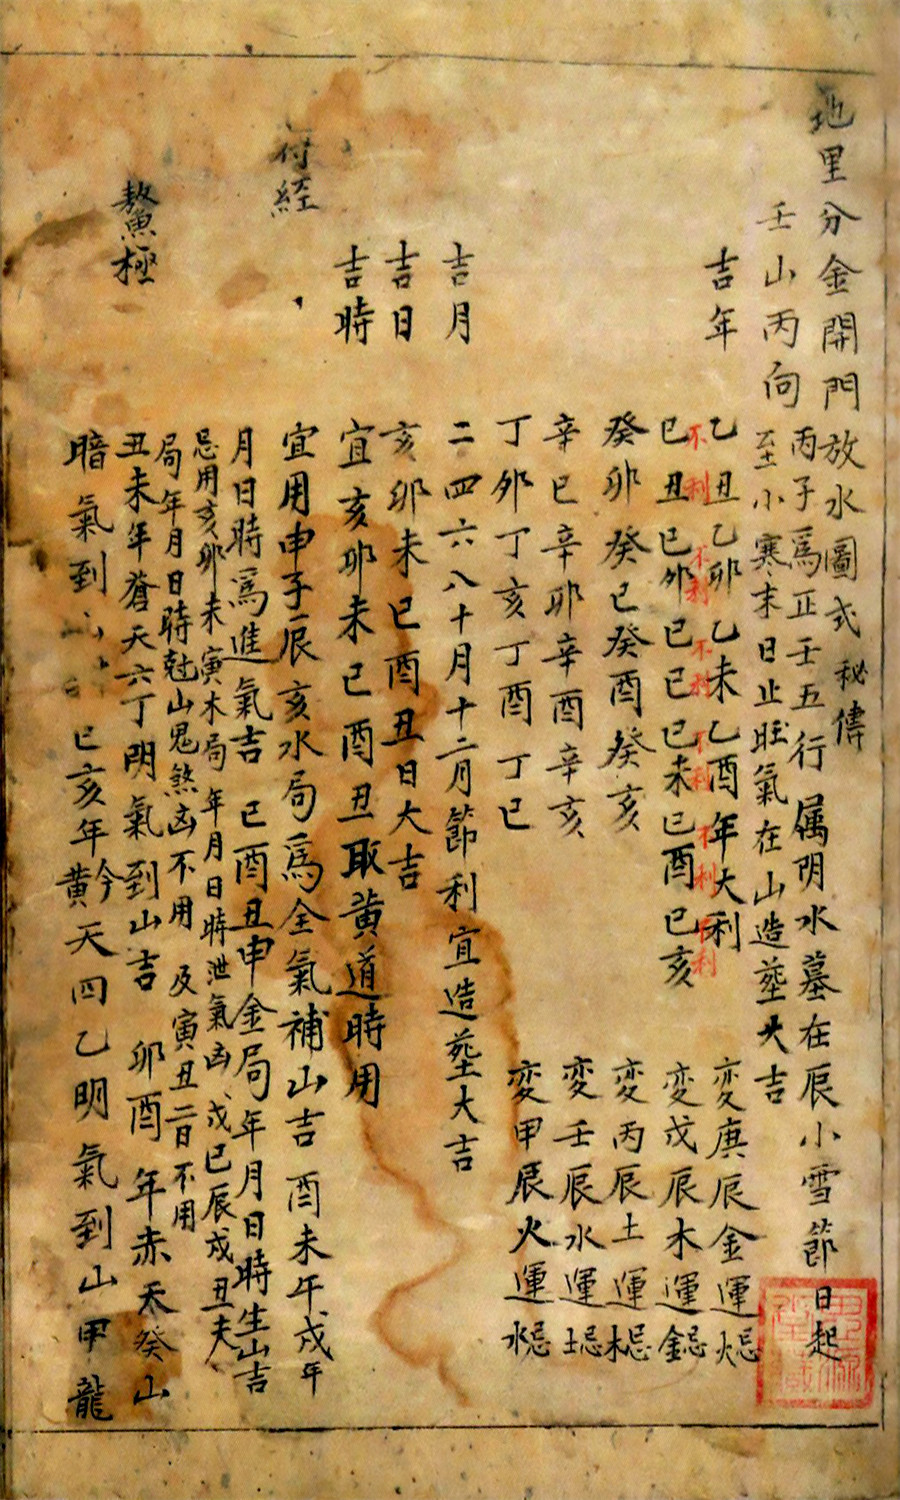 地里分金開門放水圖式 秘傳
壬山丙向
丙子為正壬五行 属阴水墓在辰小雪節日起
至小寒末日止旺氣在山造塟大吉
吉年
乙丑 乙卯 乙未 乙酉年大利 変庚辰金運忌火
己丑 己卯 己巳 己未 己酉 己亥 変戊辰木運忌金
不利 不利 不利 不利 不利 不利
癸卯 癸巳 癸酉 癸亥 変丙辰土運忌木
辛巳 辛卯 辛酉 辛亥 変壬辰水運忌土
丁卯 丁亥 丁酉 丁巳 変甲辰火運忌水
吉月 二四六八十月十二月節利宜造塟大吉
吉日 亥卯未巳酉丑日大吉
吉時 宜亥卯未巳酉丑取黄道時用
符經 宜用申子辰亥水局爲全氣補山吉 酉未午戌年
月日時爲進氣吉 巳酉丑申金局年月日時生山吉
忌用亥卯未寅木局年月日時泄氣凶 戊己辰戌丑夫
局年月日時尅山鬼煞凶不用 及寅丑二日不用
鰲極 丑未年蒼天六丁明氣到山吉 卯酉年赤天癸山
暗氣到 巳亥年黄今天四乙明氣到山甲龍